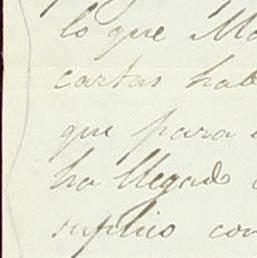 lo que
cartas
que para
ha llegado
suplico con